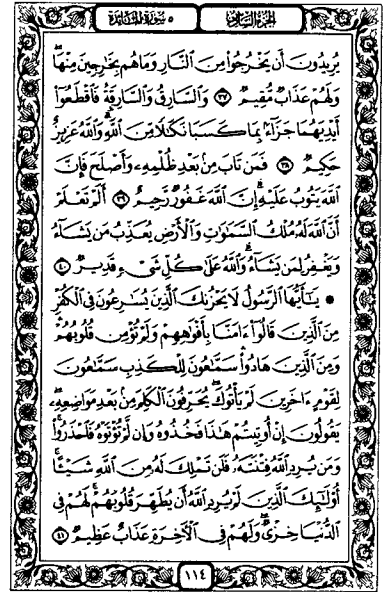 الجزء السادس ٥ سورة المائدة
يُرِيدُونَ أَن يَخْرُجُوا۟ مِنَ ٱلنَّارِ وَمَا هُم بِخَٰرِجِينَ مِنْهَا ۖ
وَلَهُمْ عَذَابٌ مُّقِيمٌ ٣٧ وَٱلسَّارِقُ وَٱلسَّارِقَةُ فَٱقْطَعُوٓا۟
أَيْدِيَهُمَا جَزَآءًۢ بِمَا كَسَبَا نَكَٰلًا مِّنَ ٱللَّهِ ۗ وَٱللَّهُ عَزِيزٌ
حَكِيمٌ ٣٨ فَمَن تَابَ مِنۢ بَعْدِ ظُلْمِهِۦ وَأَصْلَحَ فَإِنَّ
ٱللَّهَ يَتُوبُ عَلَيْهِ ۗ إِنَّ ٱللَّهَ غَفُورٌ رَّحِيمٌ ٣٩ أَلَمْ تَعْلَمْ
أَنَّ ٱللَّهَ لَهُۥ مُلْكُ ٱلسَّمَٰوَٰتِ وَٱلْأَرْضِ يُعَذِّبُ مَن يَشَآءُ
وَيَغْفِرُ لِمَن يَشَآءُ ۗ وَٱللَّهُ عَلَىٰ كُلِّ شَىْءٍ قَدِيرٌ ٤٠
يَٰٓأَيُّهَا ٱلرَّسُولُ لَا يَحْزُنكَ ٱلَّذِينَ يُسَٰرِعُونَ فِى ٱلْكُفْرِ
مِنَ ٱلَّذِينَ قَالُوٓا۟ ءَامَنَّا بِأَفْوَٰهِهِمْ وَلَمْ تُؤْمِن قُلُوبُهُمْ ۛ
وَمِنَ ٱلَّذِينَ هَادُوا۟ ۛ سَمَّٰعُونَ لِلْكَذِبِ سَمَّٰعُونَ
لِقَوْمٍ ءَاخَرِينَ لَمْ يَأْتُوكَ ۖ يُحَرِّفُونَ ٱلْكَلِمَ مِنۢ بَعْدِ مَوَاضِعِهِۦ ۖ
يَقُولُونَ إِنْ أُوتِيتُمْ هَٰذَا فَخُذُوهُ وَإِن لَّمْ تُؤْتَوْهُ فَٱحْذَرُوا۟ ۚ
وَمَن يُرِدِ ٱللَّهُ فِتْنَتَهُۥ فَلَن تَمْلِكَ لَهُۥ مِنَ ٱللَّهِ شَيْـًٔا ۚ
أُو۟لَٰٓئِكَ ٱلَّذِينَ لَمْ يُرِدِ ٱللَّهُ أَن يُطَهِّرَ قُلُوبَهُمْ ۚ لَهُمْ فِى
ٱلدُّنْيَا خِزْىٌ ۖ وَلَهُمْ فِى ٱلْءَاخِرَةِ عَذَابٌ عَظِيمٌ ٤١
١١٤